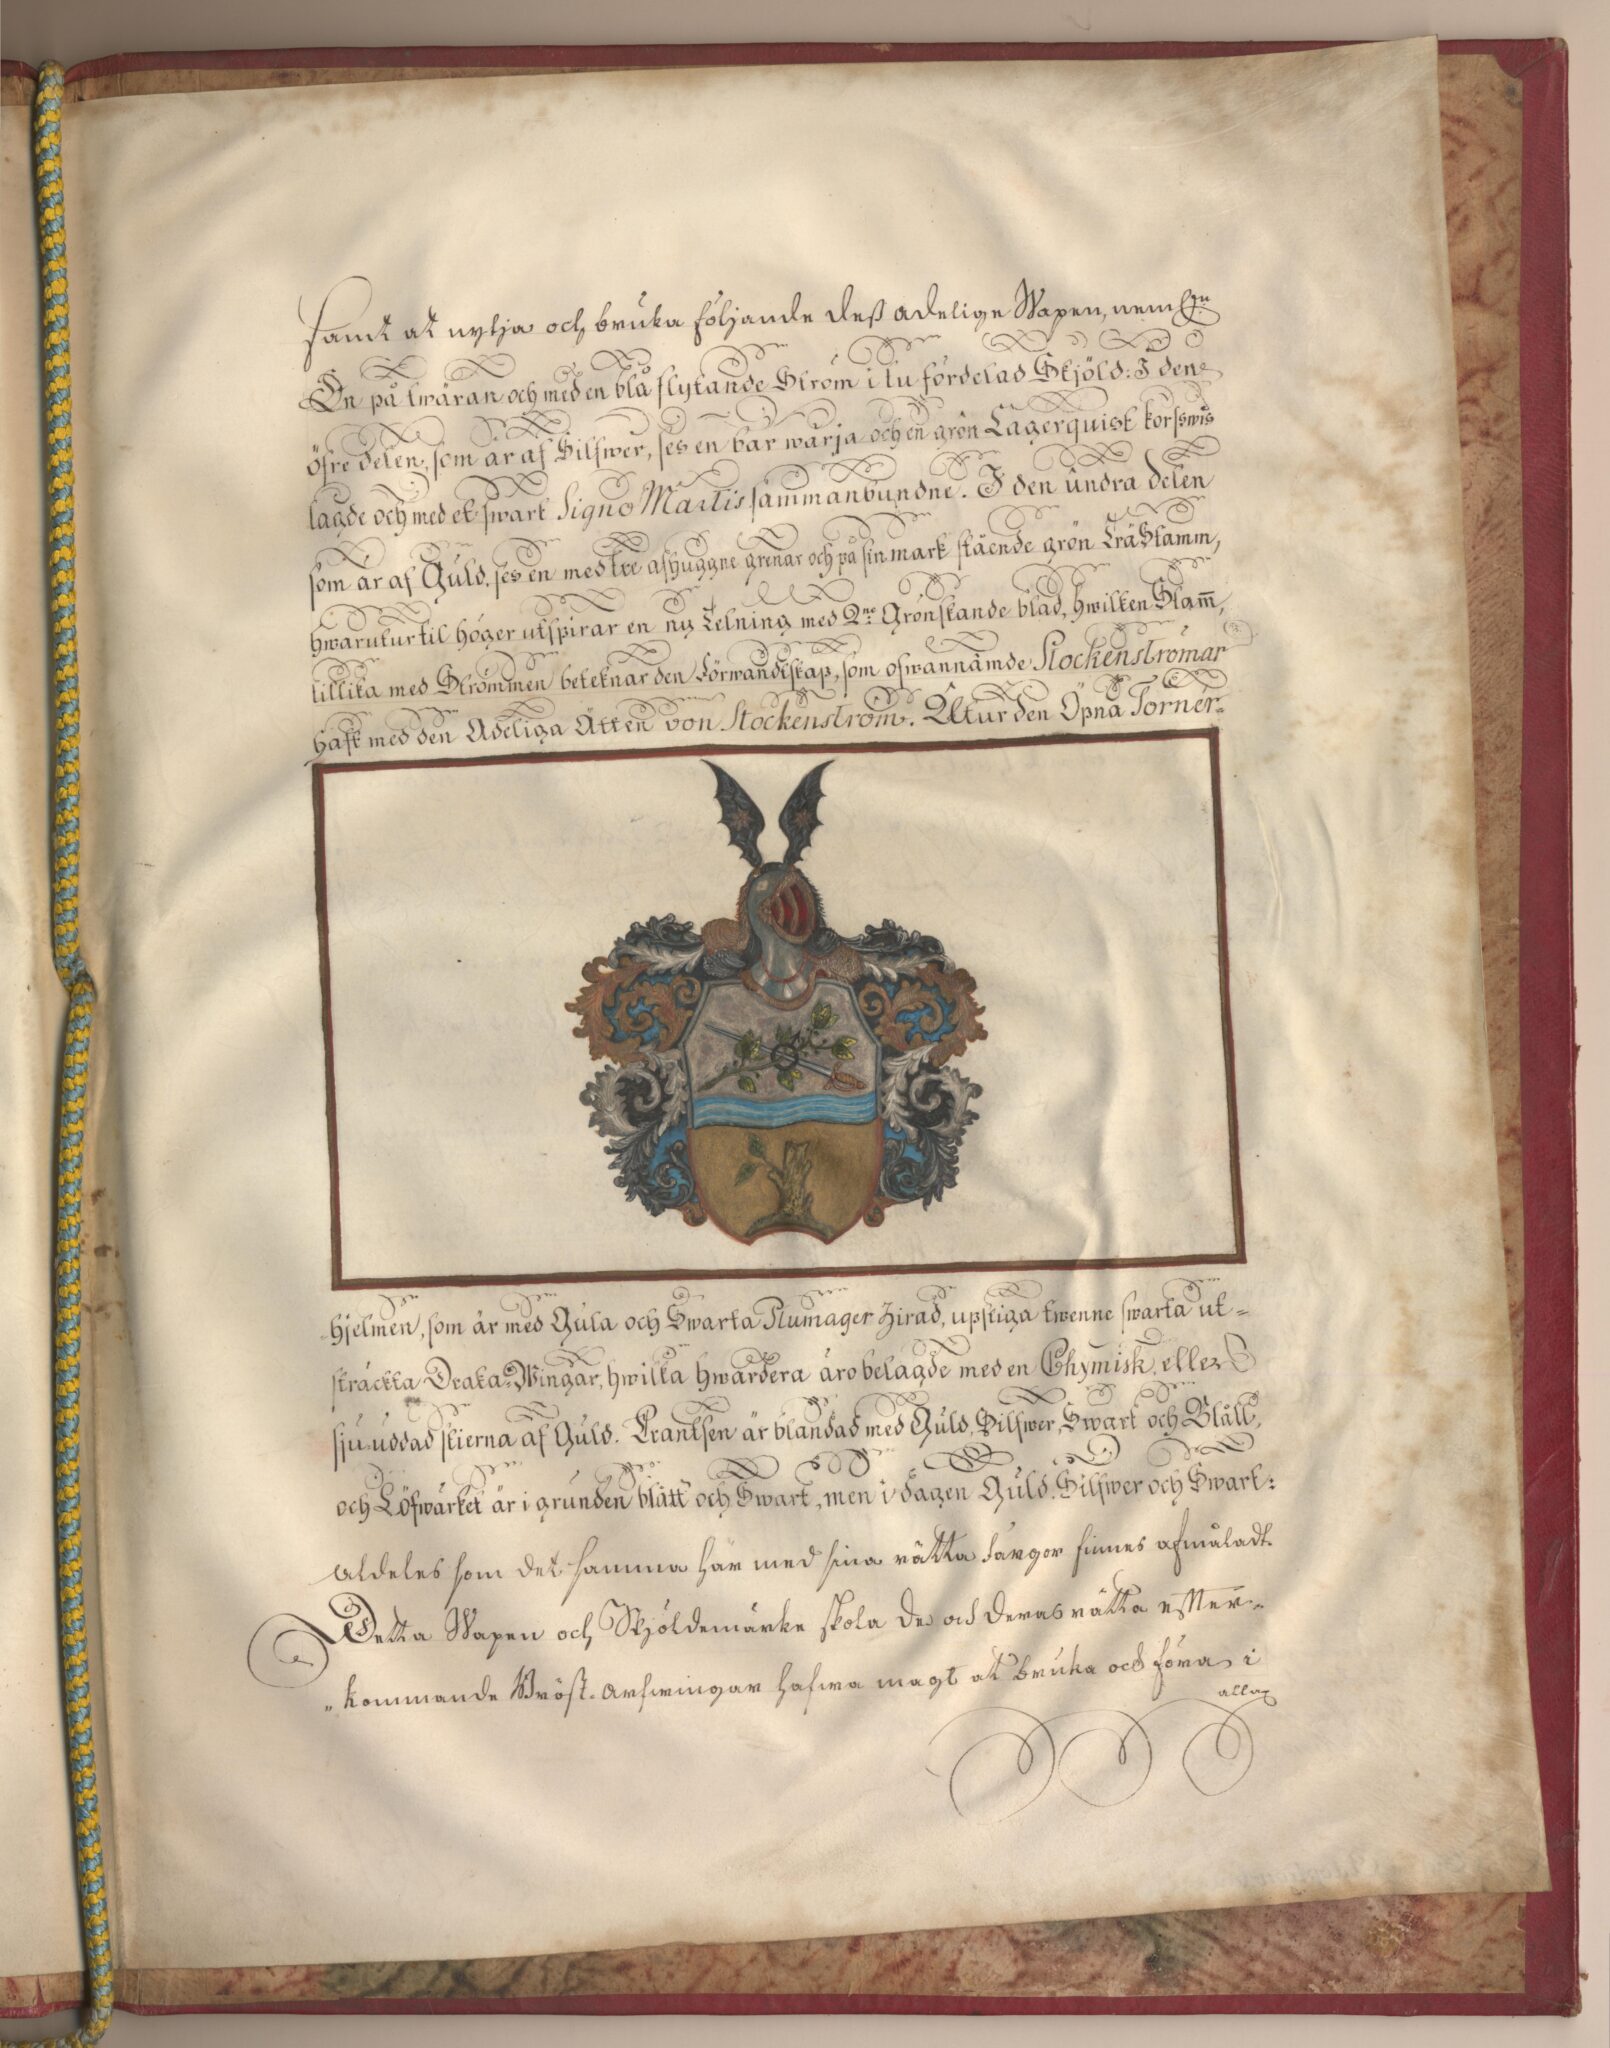 samt at nytja och bruka följande deß adelige Wapen, neml:n
En på twäran och med en blå flytande Ström i tu fördelad Skjöld: I den
öfre delen, som är af Silfwer, ses en bar wärja och en grön Lagerquist korswis
lagde och med et swart Signo Martis sammanbundne. I den undra delen
som är af Guld, ses en med tre afhuggne grenar och på sin mark stående grön TräStamm,
hwarutur til höger utspirar en ny Telning med 2:ne Grönskande blad, hwilken Stam̅,
tillika med Strömmen beteknar den Förwandtskap, som ofwannämde Stockenströmar
haft med den Adeliga Ätten von Stockenström. Utur den Öpna Torner-
hjelmen, som är med Gula och Swarta Plumager Zirad, upstiga twenne swarta ut-
sträckta Draka-Wingar, hwilka hwardera äro belagde med en Chymisk, eller
sju uddad stierna af Guld. Krantsen är blandad med Guld, Silfwer, Swart och Blått,
och Löfwärket är i grunden blått och Swart, men i dagen Guld, Silfwer och Swart:
aldeles som det samma här med sina rätta färgor finnes afmåladt.
Detta Wapen och Skjöldemärke skola de och deras rätta efter-
„kommande Bröst-arfwingar hafwa magt at bruka och föra i
alla